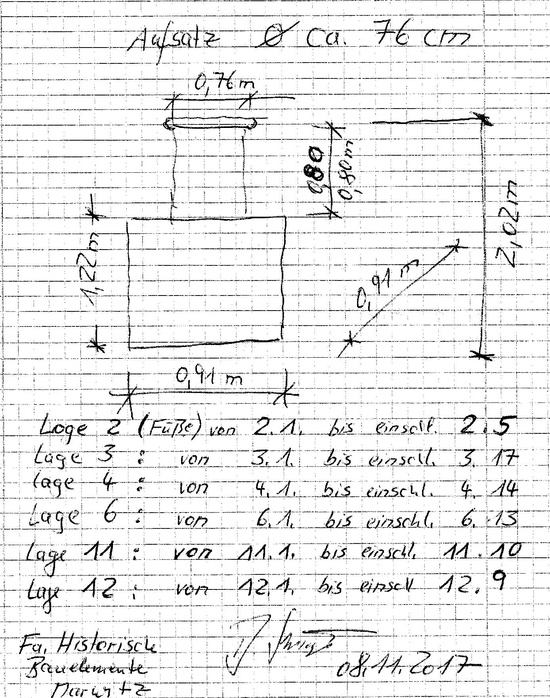 Aufsatz Ø ca. 76 cm
0,76 m
0,80
0,80 m
1,22 m
2,02 m
0,91 m
0,91 m
Lage 2 (Füße) von 2.1. bis einschl. 2.5
Lage 3 : von 3.1. bis einschl. 3.17
Lage 4 : von 4.1. bis einschl. 4.14
Lage 6 : von 6.1. bis einschl. 6.13
Lage 11 : von 11.1. bis einschl. 11.10
Lage 12 : von 12.1. bis einschl 12.9
Fa. Historische
Bauelemente
Marwitz
08.11.2017